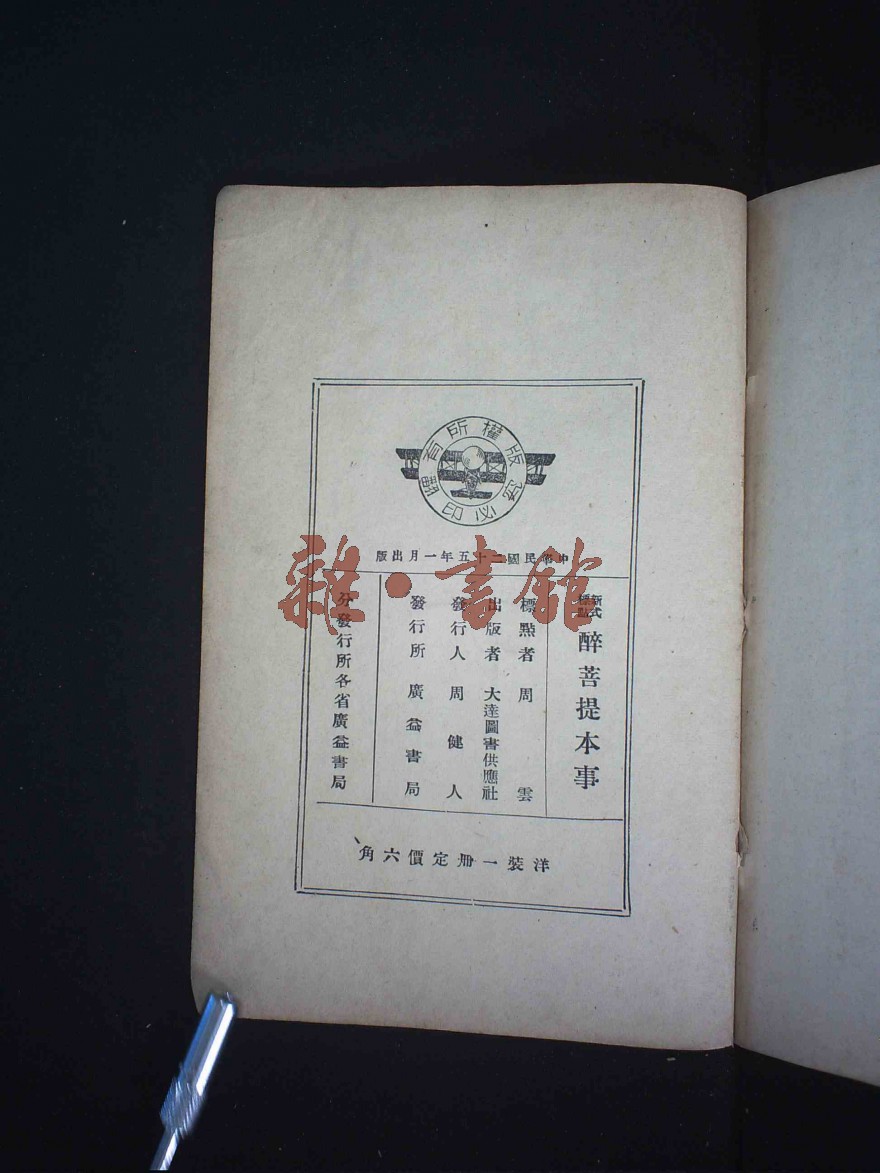 版權所有
翻印必究
中華民國二十五年一月出版
新式標點 醉菩提本事
標點者 周雲
出版者 大達圖書供應社
發行人 周健人
發行所 廣益書局
分發行所各省廣益書局
洋裝一冊定價六角
雜·書館